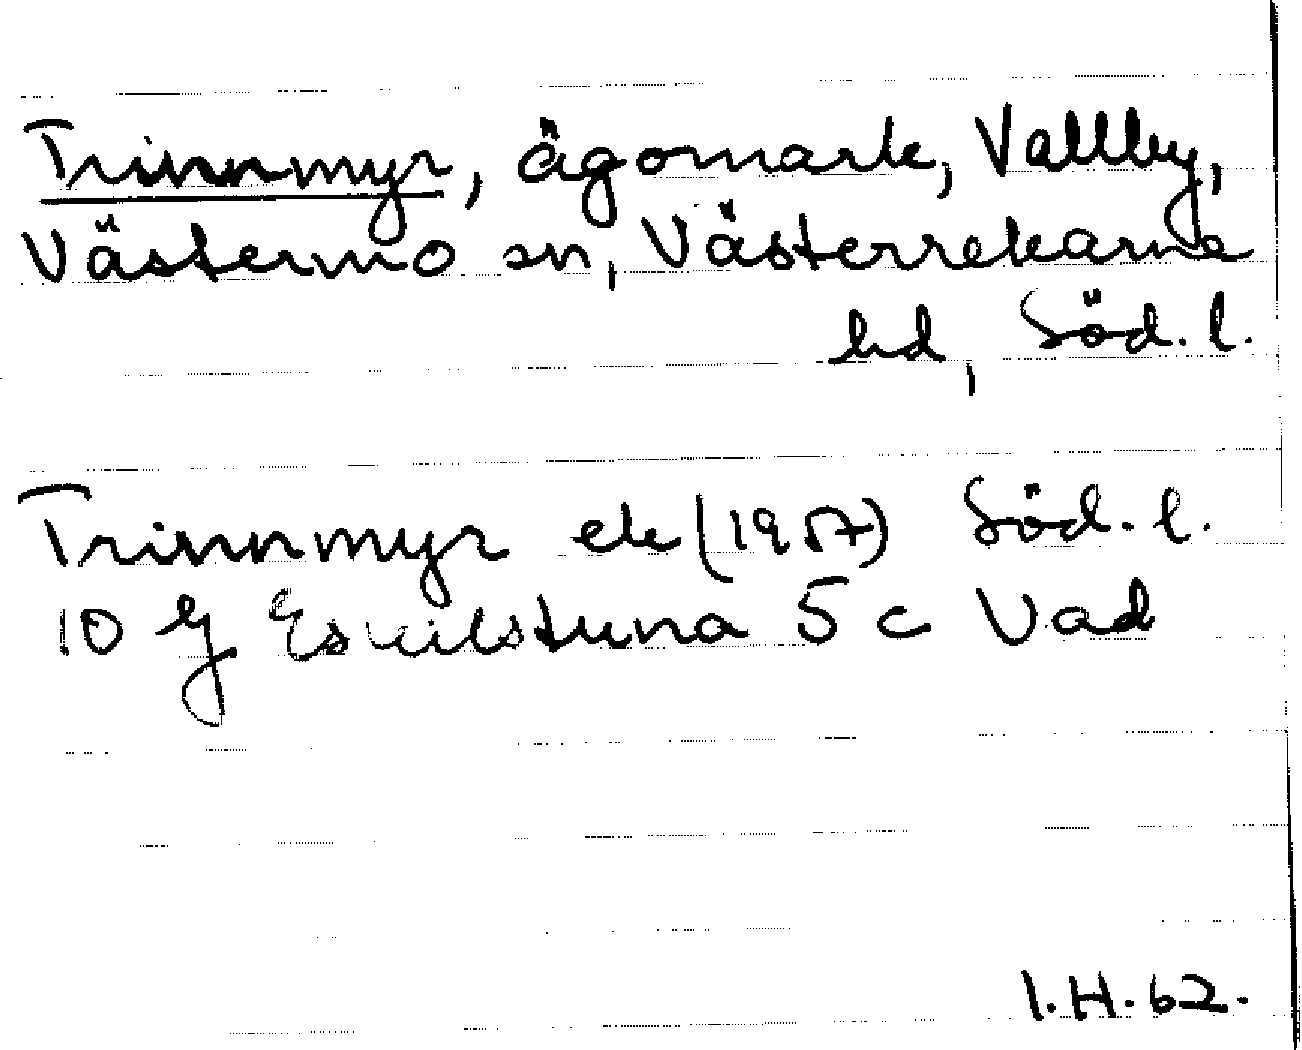 Trinnmyr, ägomark, Vallby,
Västermo sn, Västerrekarne
hd, Söd. l.
Trinnmyr ek (1957) Söd. l.
10 g Eskilstuna 5 c Vad
I.H. 62.